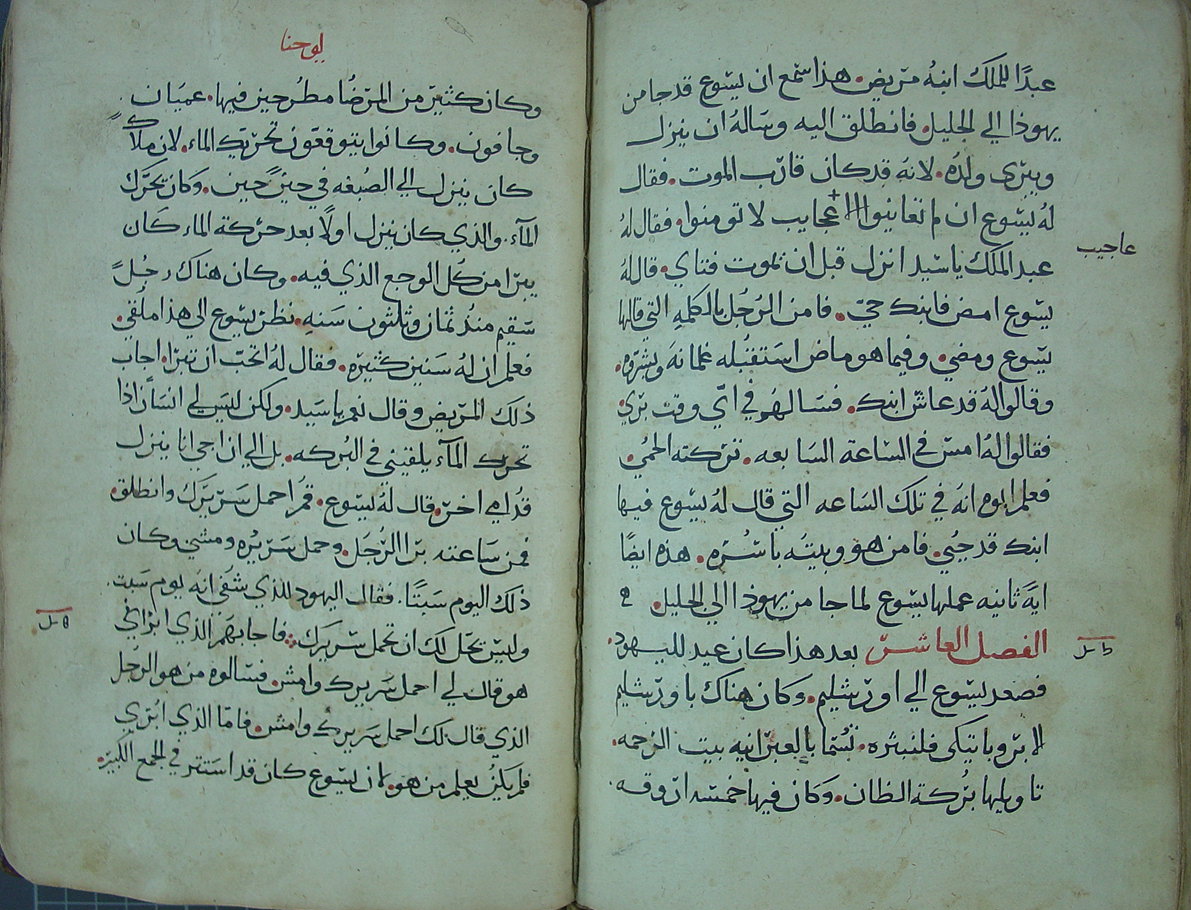 عبدًا للملك ابنهُ مريض. هذا سمع ان يسوع قد جا من
يهوذا الي الجليل. فانطلق اليه وساله ان ينزل
ويبري ولده. لانه قد كان قارب الموت. فقال
لهُ يسوع ان لم تعاينوا عجايب لا تومنوا. فقال لهُ
عاجيب
عبد الملك يا سيد انزل قبل ان يموت فتاي. قال لهُ
يسوع امض فابنك حيّ. فامن الرجُل بالكلمه التي قالها
يسوع ومضي. وفيما هو ماض استقبله غلمانه وبشروه.
وقالوا لهُ قد عاش ابنك. فسالهُم في اي وقت بري
فقالوا لهُ امس في الساعة السابعه. تركته الحمي.
فعلم ابوه انهُ في تلك الساعه التي قال لهُ يسوع فيها
ابنك قد حيي. فامن هو وبيته باسره. هذه ايضًا
ايه ثانيه عملها يسوع لما جا من يهوذا الي الجليل.
الفصل العاشر بعد هذا كان عيد لليهود.
فصعد يسوع الي اورشليم. وكان هناك باورشليم
الابروباتيكي قلنبثره. تسما بالعبرانيه بيت الرحمه.
تاويلها بركة الظان. وكان فيها خمسه اروقه.
يوحنا
وكان كثير من المرضا مطرحين فيها. عميان
وجافون. وكانوا يتوقعون تحريك الماء. لان ملاك
كان ينزل الي الصبغه في حين حين. وكان يحرك
المآء. والذي كان ينزل اولًا بعد حركة الماء كان
يبرا من كل الوجع الذي فيه. وكان هناك رجُل
سقيم منذ ثمان وثلثون سنه. نظر يسوع الي هذا ملقي.
فعلم ان له سنين كثيره. فقال لهُ اتحب ان تبرا. اجاب
ذلك المريض وقال نعم يا سيد. ولكن ليس لي انسان اذا
تحرك المآء يلقيني في البركه. بل الي ان اجي انا ينزل
قدامي اخر. قال لهُ يسوع. قمُ احمل سريرك وانطلق.
فمن ساعته برا الرجل. وحمل سريره ومشي وكان
ذلك اليوم سبتًا. فقال اليهود للذي شفي انه يوم سبت
وليس يحل لك ان تحمل سريرك. فاجابهم الذي ابراني
هو قال لي احمل سريرك وامش. فسالوه من هو الرجل
الذي قال لك احمل سريرك وامش. فامّا الذي ابري
فلم يكن يعلم من هو. لان يسوع كان قد استتر في الجمع الكبير.